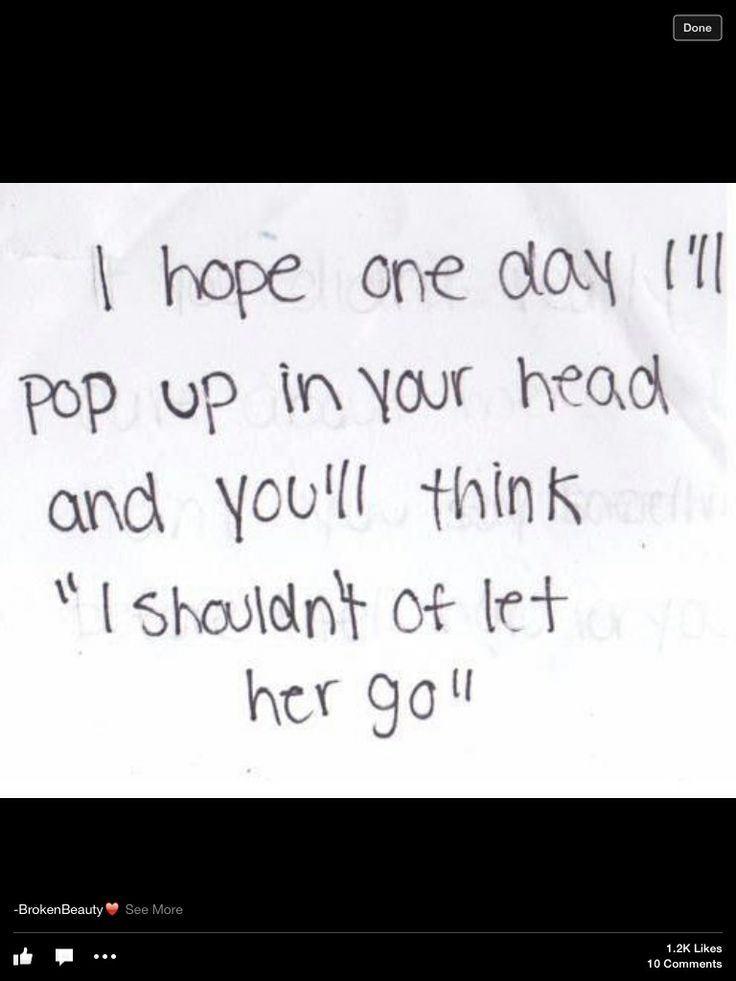 Done
I hope one day I'll
pop up in your head
and you'll think
"I shouldn't of let
her go"
-BrokenBeauty❤️ See More
1.2K Likes
10 Comments